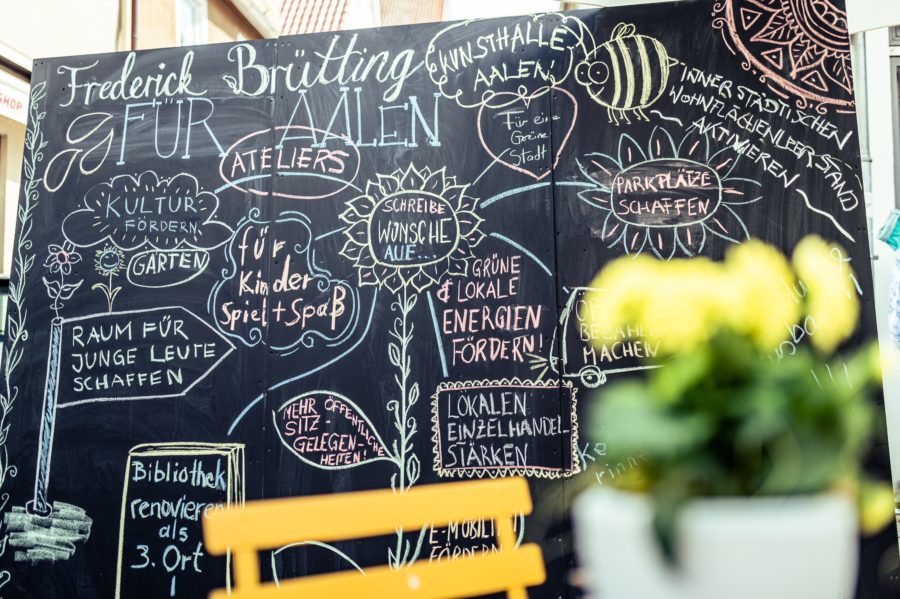 Frederick Brütting
FÜR AALEN
KUNSTHALLE
AALEN!
INNERSTÄDTISCHEN
WOHNFLÄCHENLEERSTAND
AKTIVIEREN
SHOP
Für eine
Grüne
Stadt
ATELIERS
KULTUR
FÖRDERN
SCHREIBE
WÜNSCHE
AUF...
PARKPLÄTZE
SCHAFFEN
GÄRTEN
für
Kinder
Spiel + Spaß
GRÜNE
& LOKALE
ENERGIEN
FÖRDERN!
MACHEN
RAUM FÜR
JUNGE LEUTE
SCHAFFEN
MEHR ÖFFENTLICHE
SITZ-
GELEGEN-
HEITEN!
LOKALEN
EINZELHANDEL
STÄRKEN
Bibliothek
renovieren
als
3. Ort
!
E-MOBILITÄT
FÖRDERN